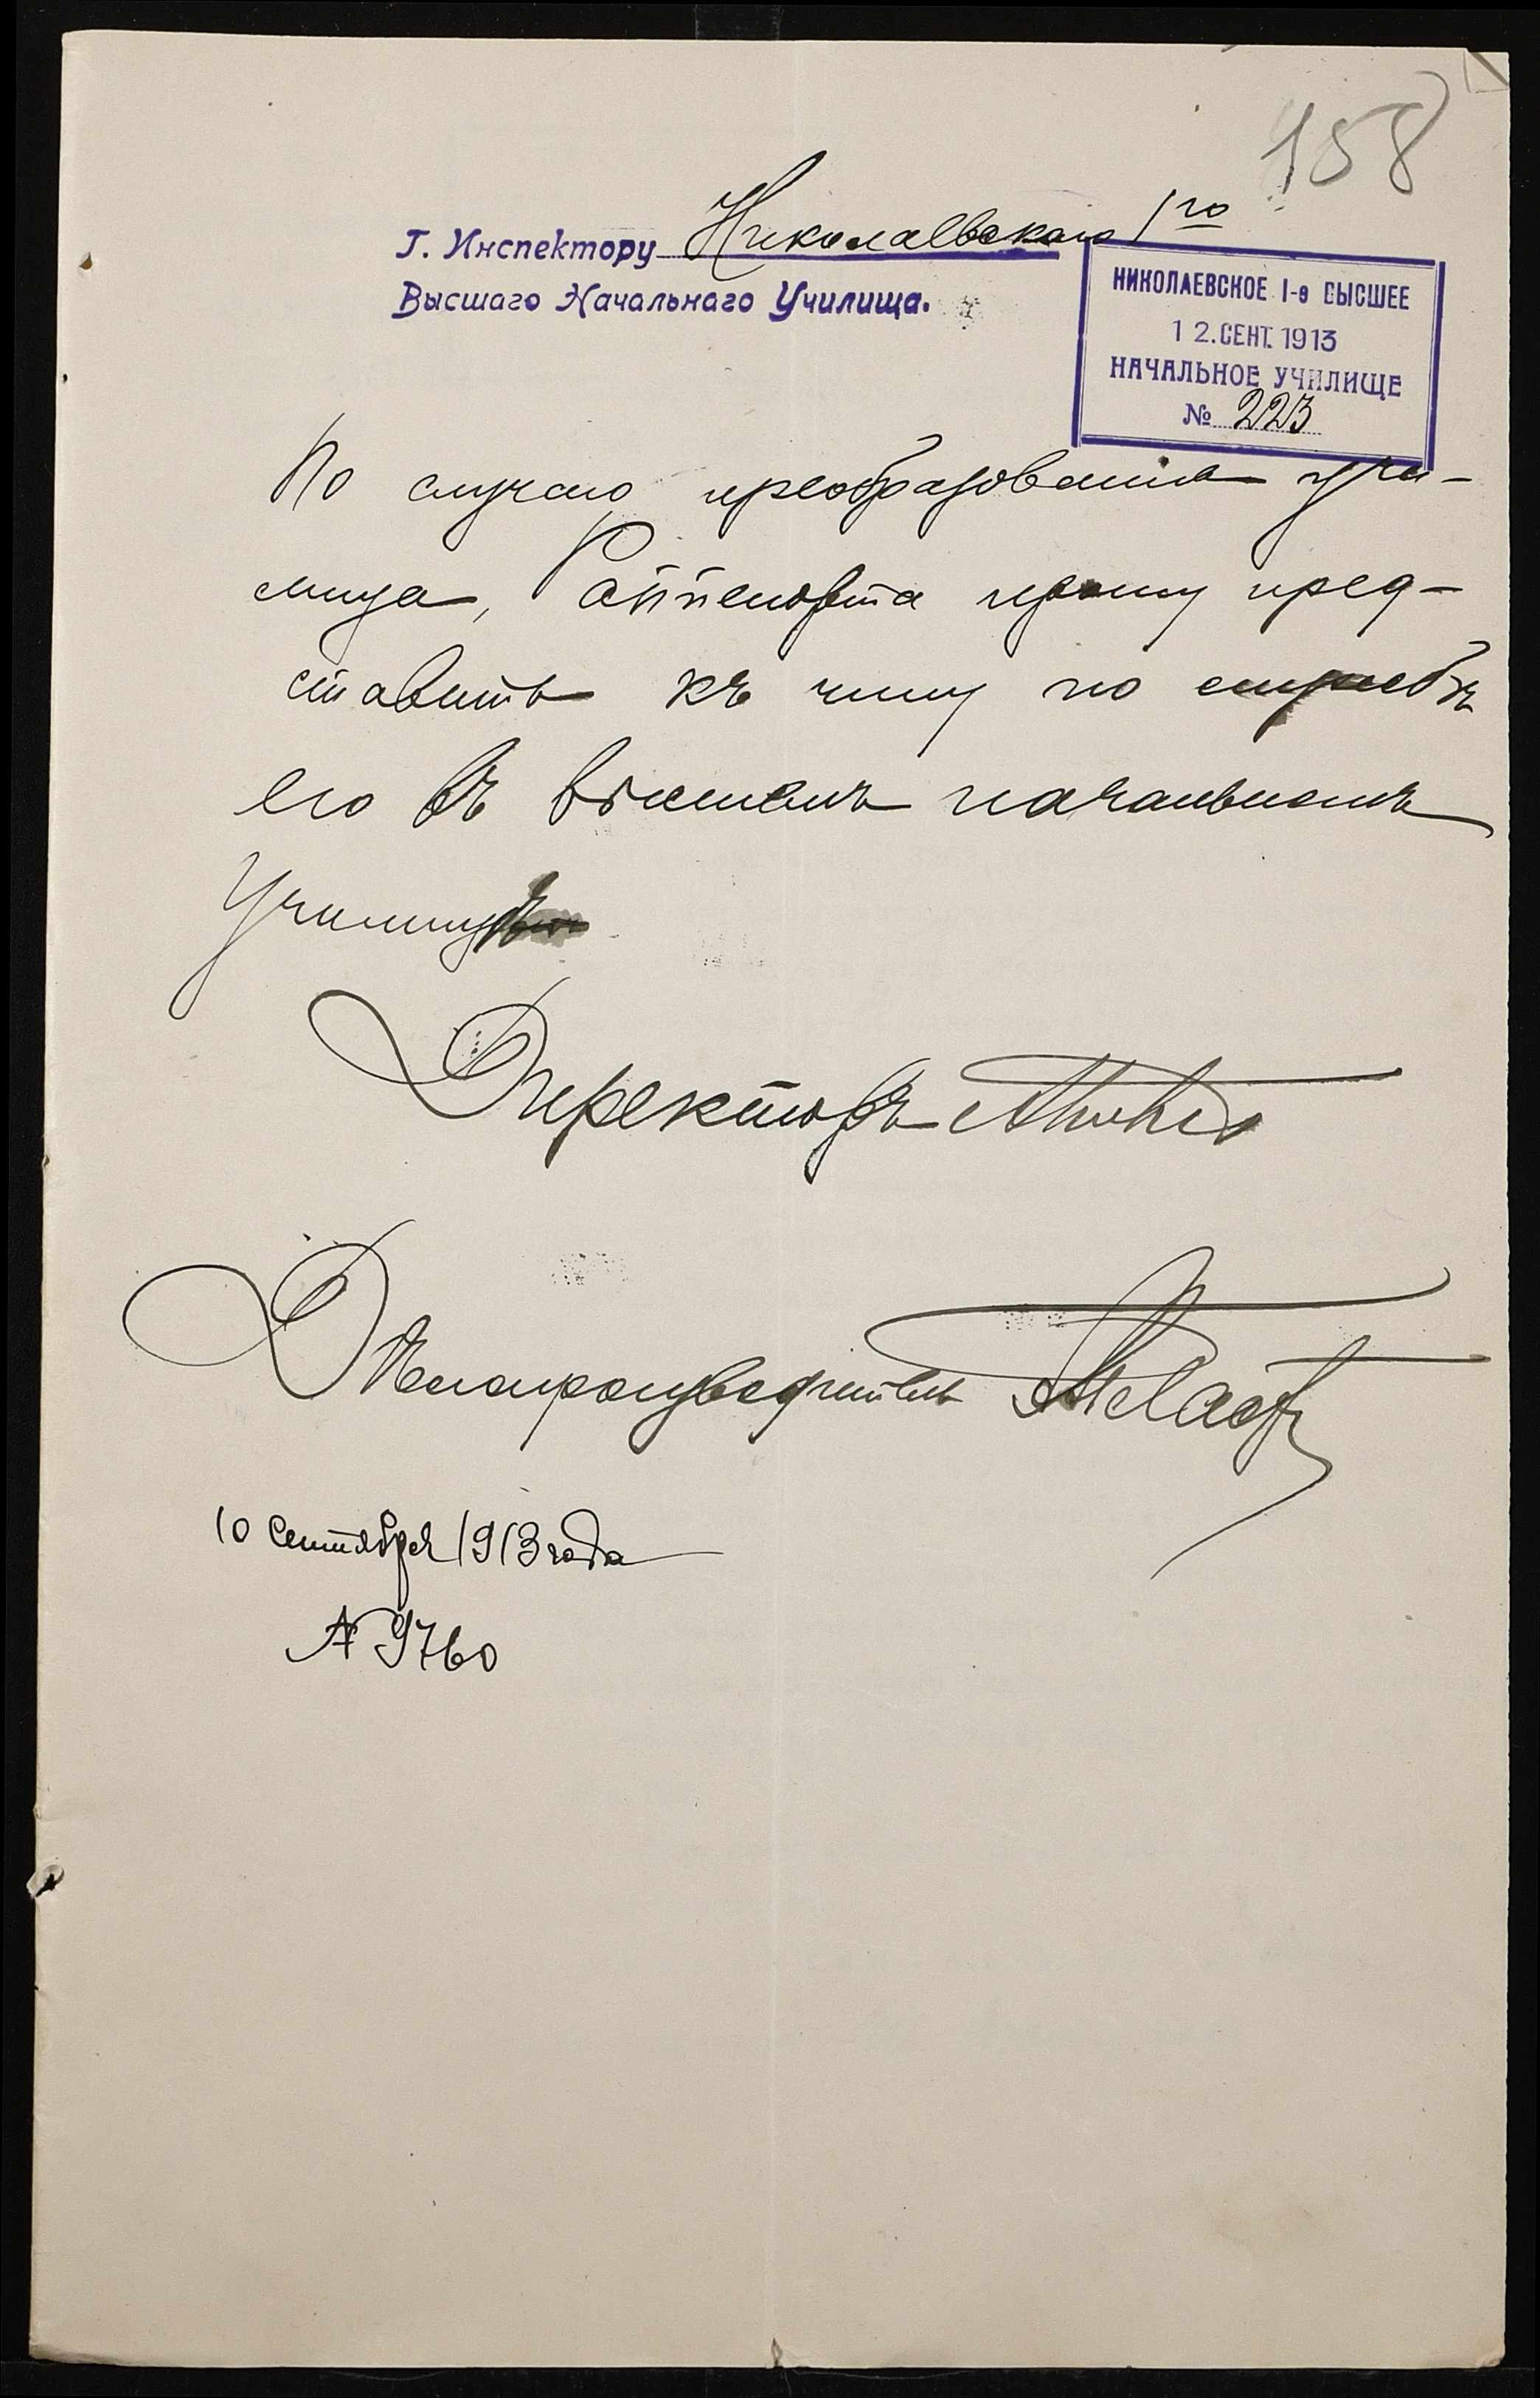 158
Г. Инспектору Николаевскаго 1го
Высшаго Начальнаго Училища.
НИКОЛАЕВСКОЕ 1-е ВЫСШЕЕ
12. СЕНТ. 1913
НАЧАЛЬНОЕ УЧИЛИЩЕ
№ 223
По случаю преобразованія учи-
лища, прошу пред-
ставить къ чину по службѣ
его въ высшемъ начальномъ
Училищѣ
Директоръ
Дѣлопроизводитель
10 Сентября 1913 года
№ 9760